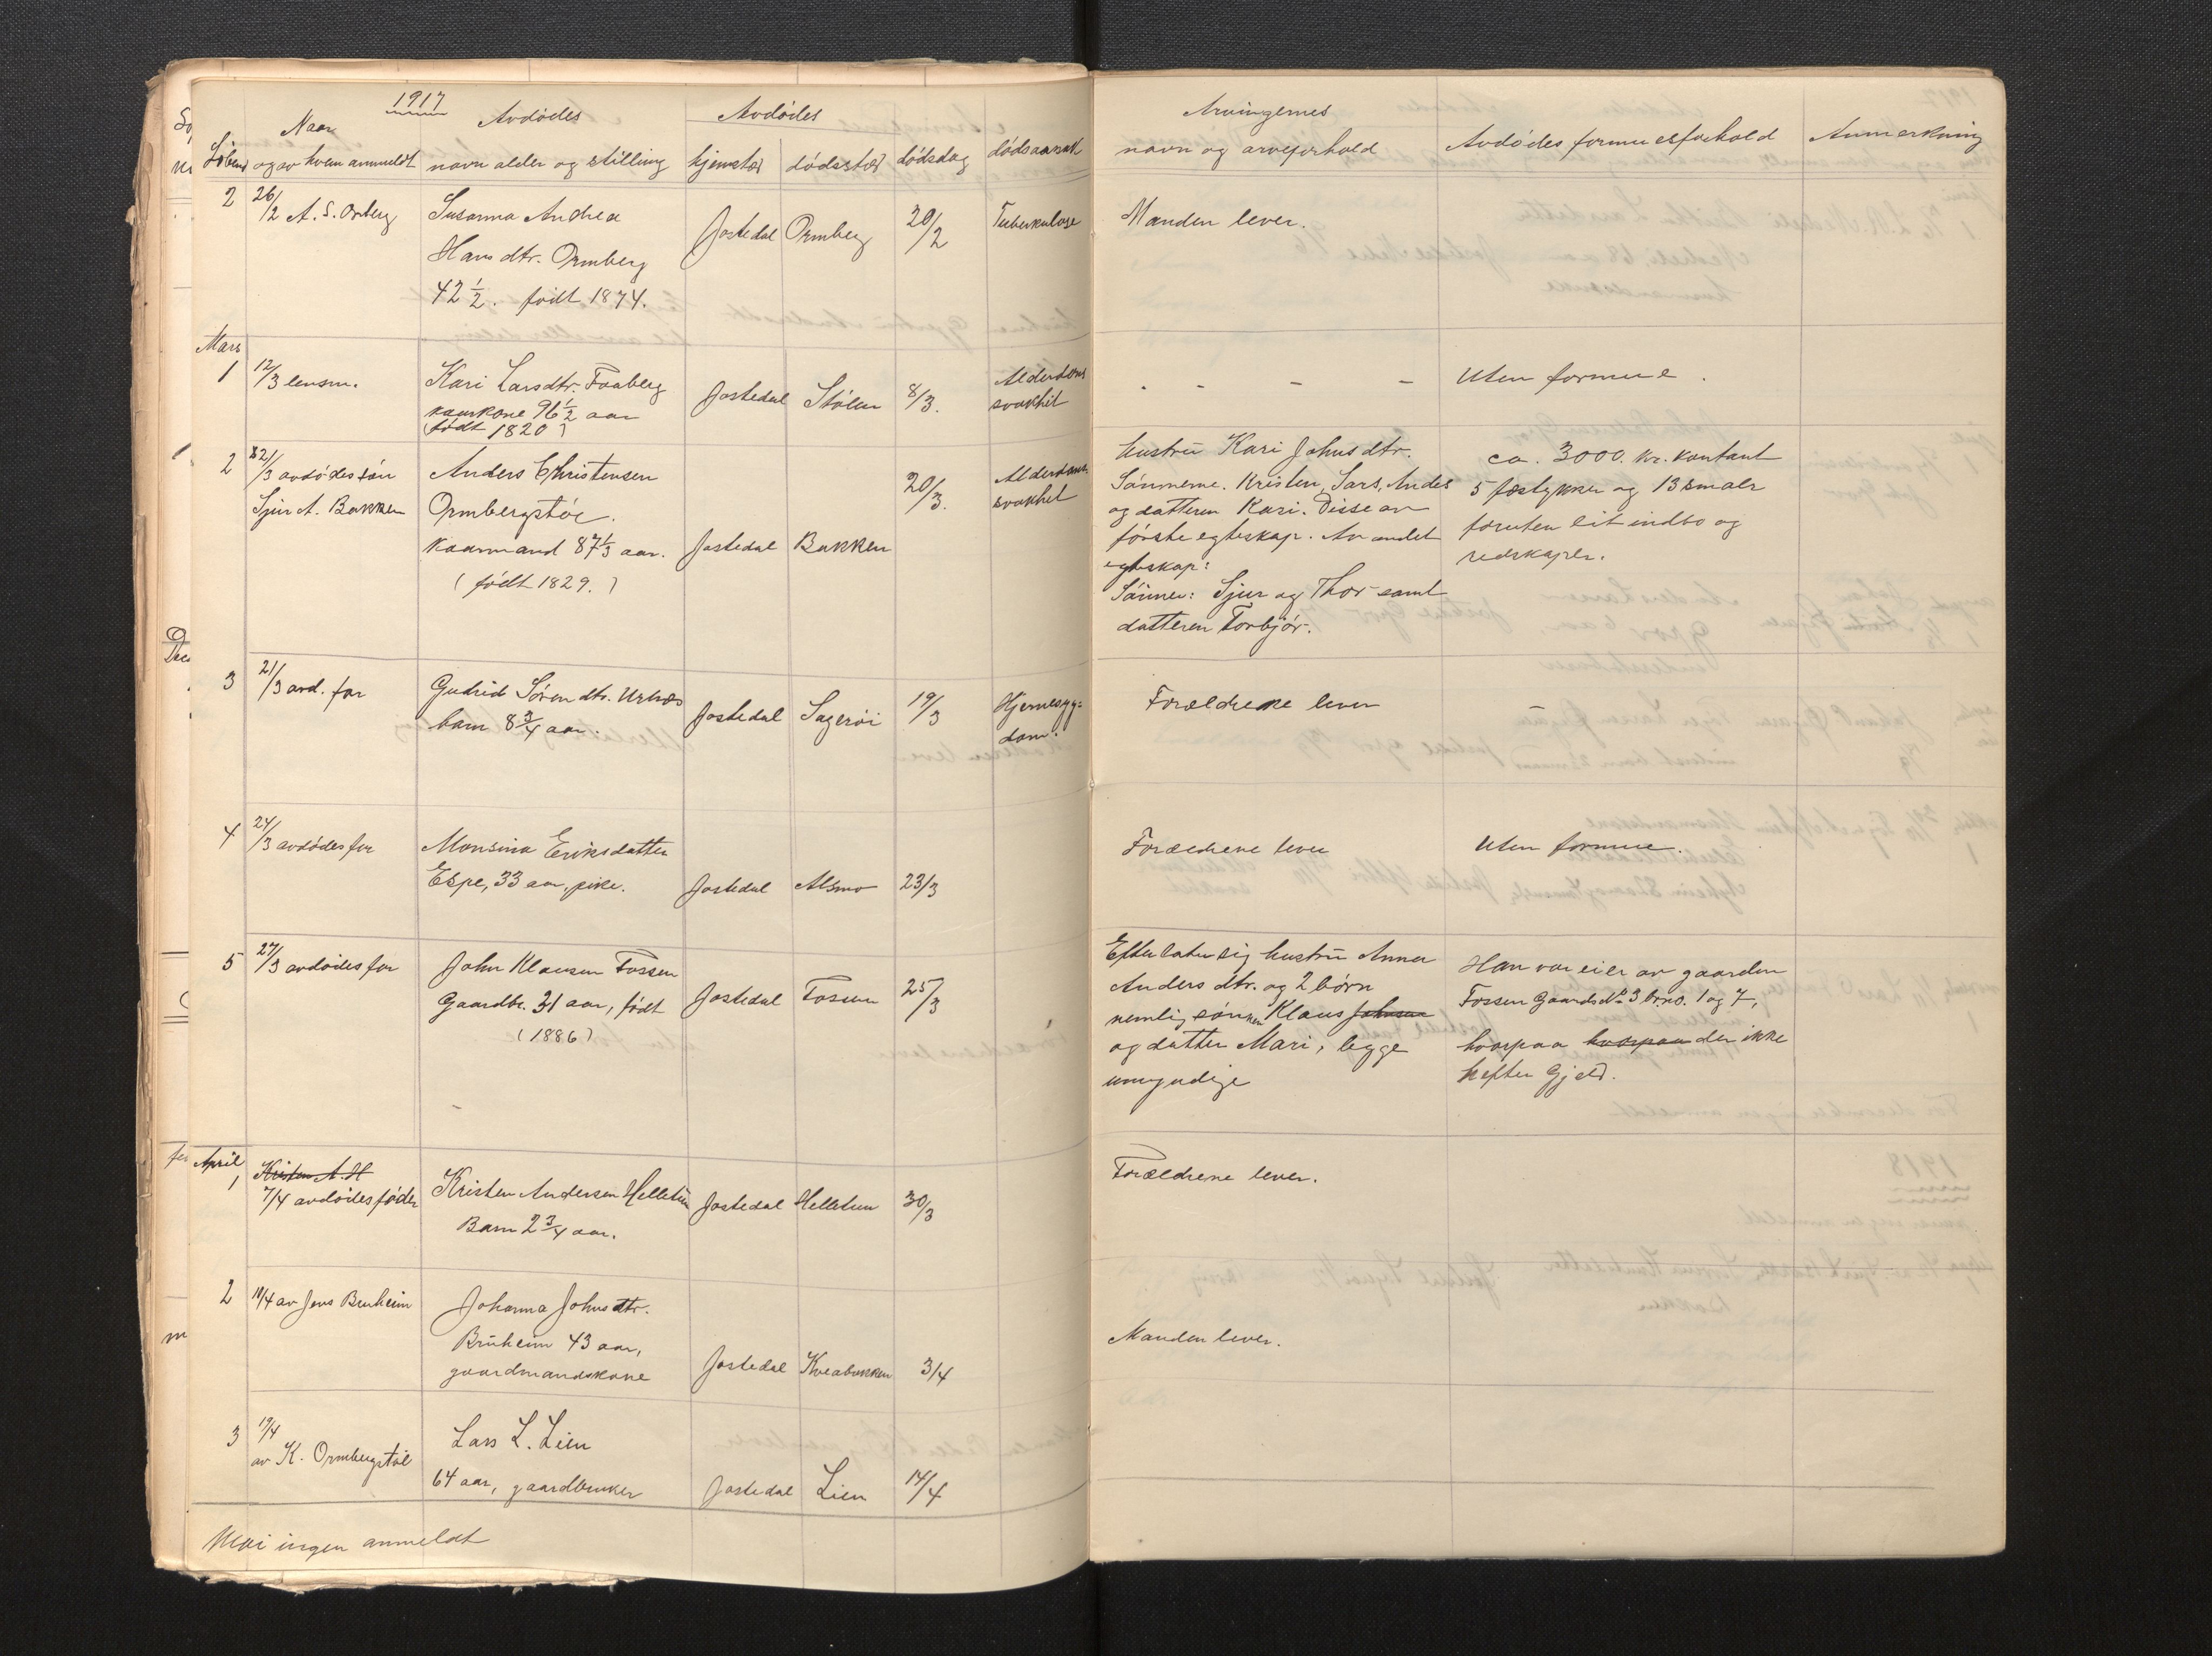 1917
Löben
Naar
og av hvem anmeldt
Avdödes
navn alder og stilling
Avdödes
hjemsted
dödssted
dödsdag
dödsaarsak
Arvingernes
navn og arveforhold
Avdödes formuesforhold
Anmerkning
2
26/2 A. S. Ormberg
Susanna Andrea
Hans dtr. Ormberg
42 1/2. födt 1874.
Jostedal
Ormberg
20/2
Tuberkulose
Manden lever.
Mars
1
12/3 lensm.
Kari Larsdtr. Faaberg
kaarkone 96 1/2 aar
(födt 1820)
Jostedal
Stölen
8/3.
Alderdoms
svakhet
- - - -
Uten formue.
2
21/3 avdödes sön
Sjur A. Bakken
Anders Christensen
Ormbergstöl.
kaarmand 87 1/3 aar.
(födt 1829.)
Jostedal
Bakken
20/3.
Alderdoms
svakhet
Hustru Kari Johnsdtr.
Sönnerne. Kristen, Lars, Anders
og datteren Kari. Disse av
förste egteskap. Av andet
egteskap:
Sönner: Sjur og Thor samt
datteren Torbjör.
ca. 3000. kr. kontant
5 fæstykker og 13 smale
foruten lit indbo og
redskaper.
3
21/3 avd. far
Gudrid Sören dtr. Urnæs
barn 8 3/4 aar.
Jostedal
Sageröi
19/3
Hjernesyg=
dom.
Forældrene lever
-
4
24/3 avdödes far
Monsina Eriksdatter
Espe, 33 aar, pike.
Jostedal
Alsmo
23/3
Forældrene lever
Uten formue.
5
27/3 avdödes far
John Klausen Fossen
Gaardbr. 31 aar, födt
(1886)
Jostedal
Fossen
25/3
Efterlater sig hustru Anna
Anders dtr. og 2 börn
nemlig sönnen Klaus Johnsen
og datter Mari, begge
umyndige
Han var eier av gaarden
Fossen Gaards No 3 brno. 1 og 7,
hvorpaa hvorpaa der ikke
hefter Gjeld.
April
1
Kristen A. H
7/4 avdödes fader
Kristen Andersen Helletun
Barn 2 3/4 aar.
Jostedal
Helletun
30/3
Forældrene lever.
2
10/4 av Jens Bruheim
Johanna Johns dtr.
Bruheim 43 aar,
gaardmandskone
Jostedal
Kveabakken
3/4
Manden lever.
3
19/4
av K. Ormbergstöl
Lars L. Lien
64 aar, gaardbruker
Jostedal
Lien
14/4
Mai ingen anmeldt